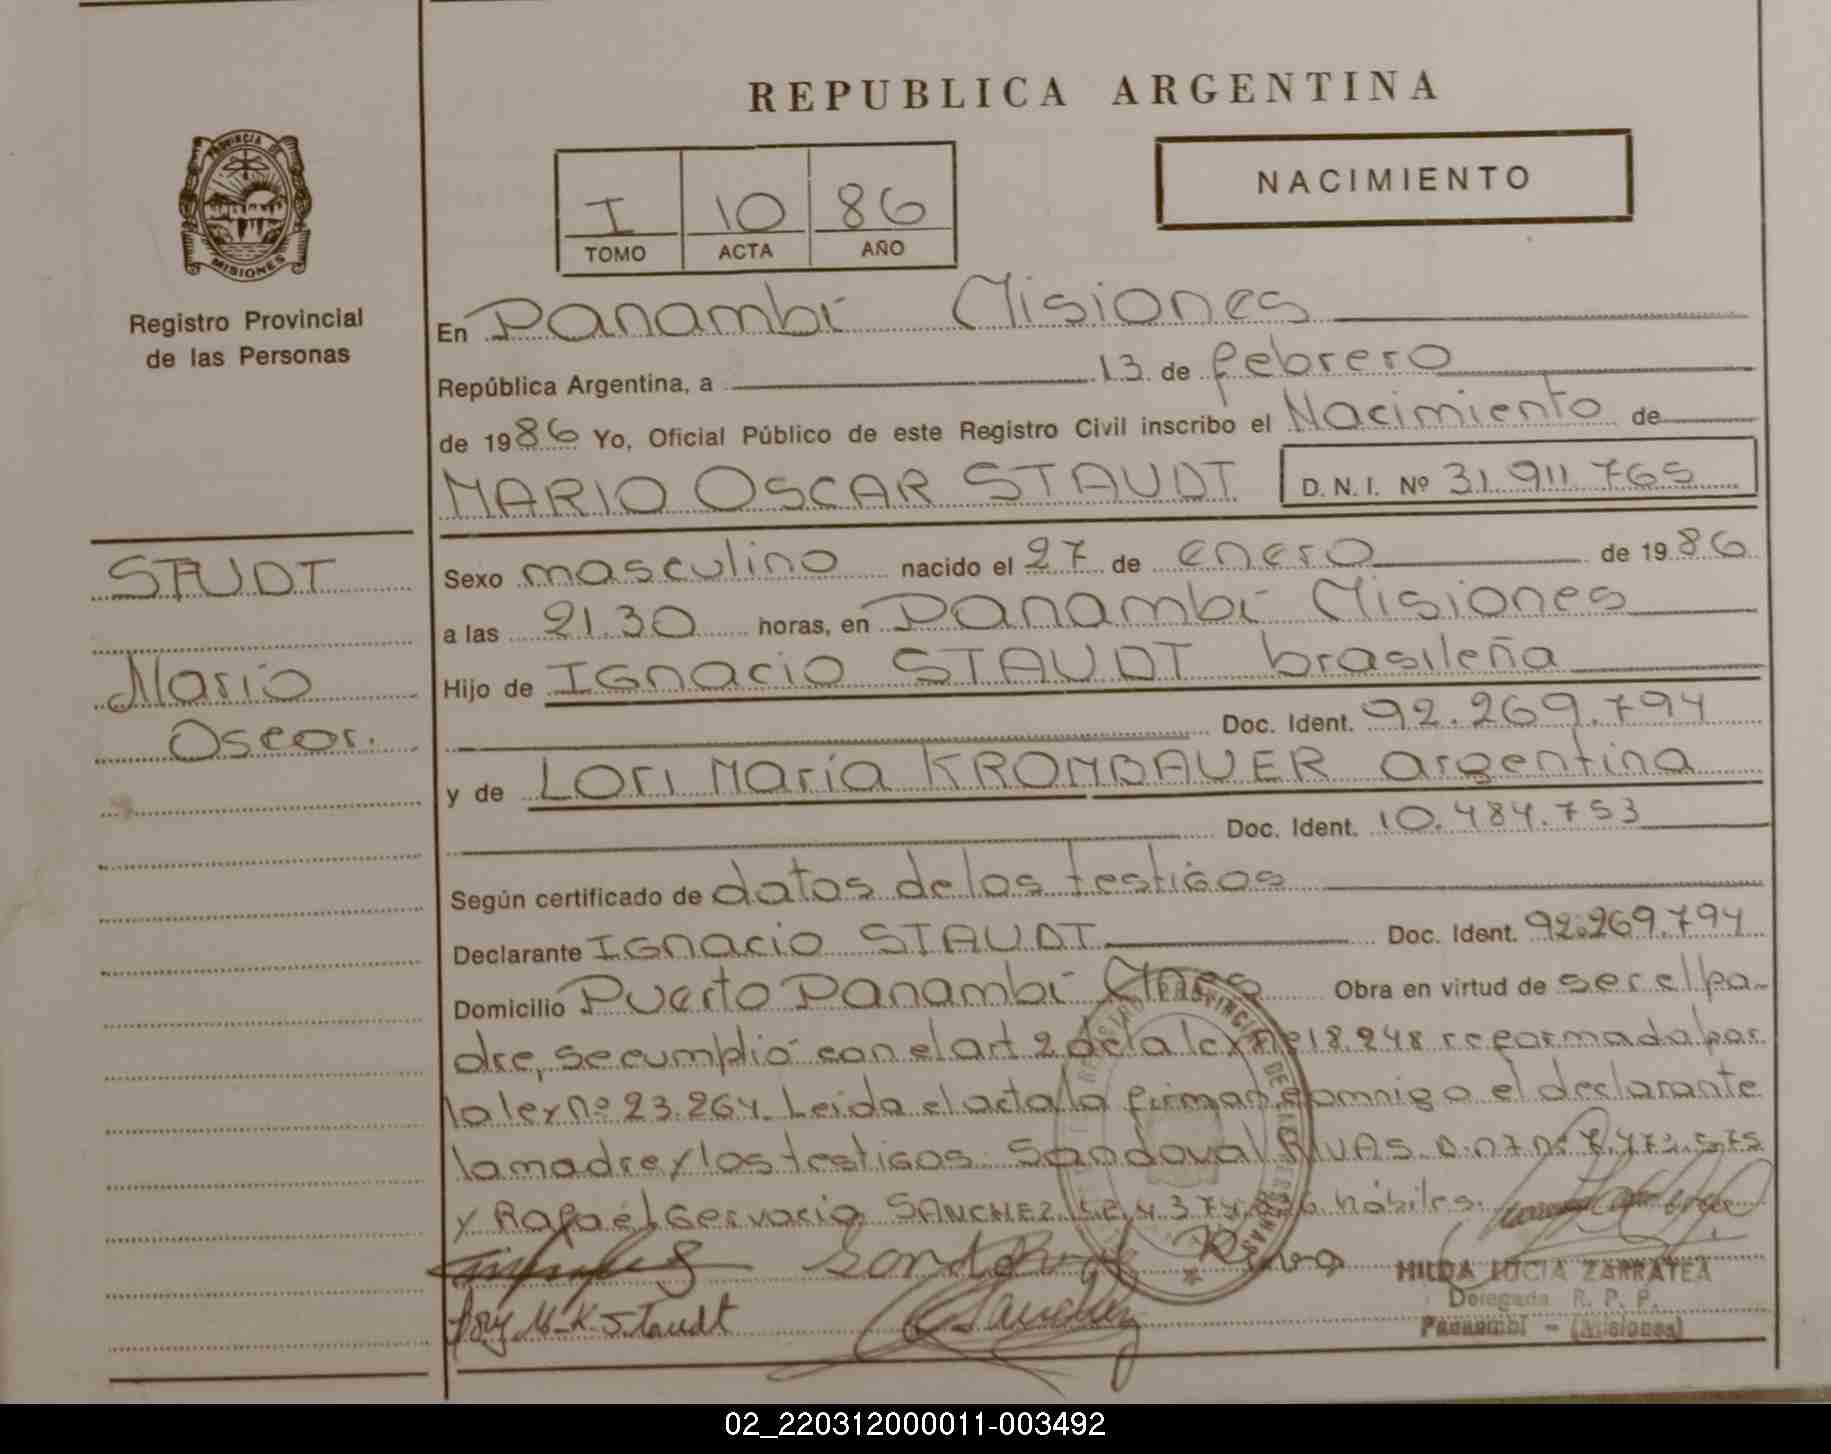 REPUBLICA ARGENTINA
PROVINCIA DE
MISIONES
Registro Provincial
de las Personas
I 10 86
TOMO ACTA AÑO
NACIMIENTO
En Panambí Misiones
República Argentina, a 13 de febrero
de 1986 Yo, Oficial Público de este Registro Civil inscribo el Nacimiento de
MARIO OSCAR STAUDT D. N. I. Nº 31.911.765
STUDT
Mario
Oscar.
Sexo masculino nacido el 27 de enero de 1986
a las 21.30 horas, en Panambí Misiones
Hijo de Ignacio STAUDT brasileña
Doc. Ident. 92.269.794
y de Lori María KROMBAUER argentina
Doc. Ident. 10.484.753
Según certificado de datos de los testigos
Declarante Ignacio STAUDT Doc. Ident. 92.269.794
Domicilio Puerto Panambí Mnes Obra en virtud de ser el pa-
dre, se cumplió con el art 2 de la ley nº 18.248 reformada por
la ley nº 23.264. Leida el acta la firman conmigo el declarante
la madre y los testigos: Sandoval RIVAS. D.N.I. nº
y Rafael Gervacio SANCHEZ hábiles.
REGISTRO PROVINCIAL DE LAS PERSONAS
Lory M. K. Staudt
HILDA LUCIA ZARRATEA
Delegada R. P. P.
Panambí - (Misiones)
02_220312000011-003492